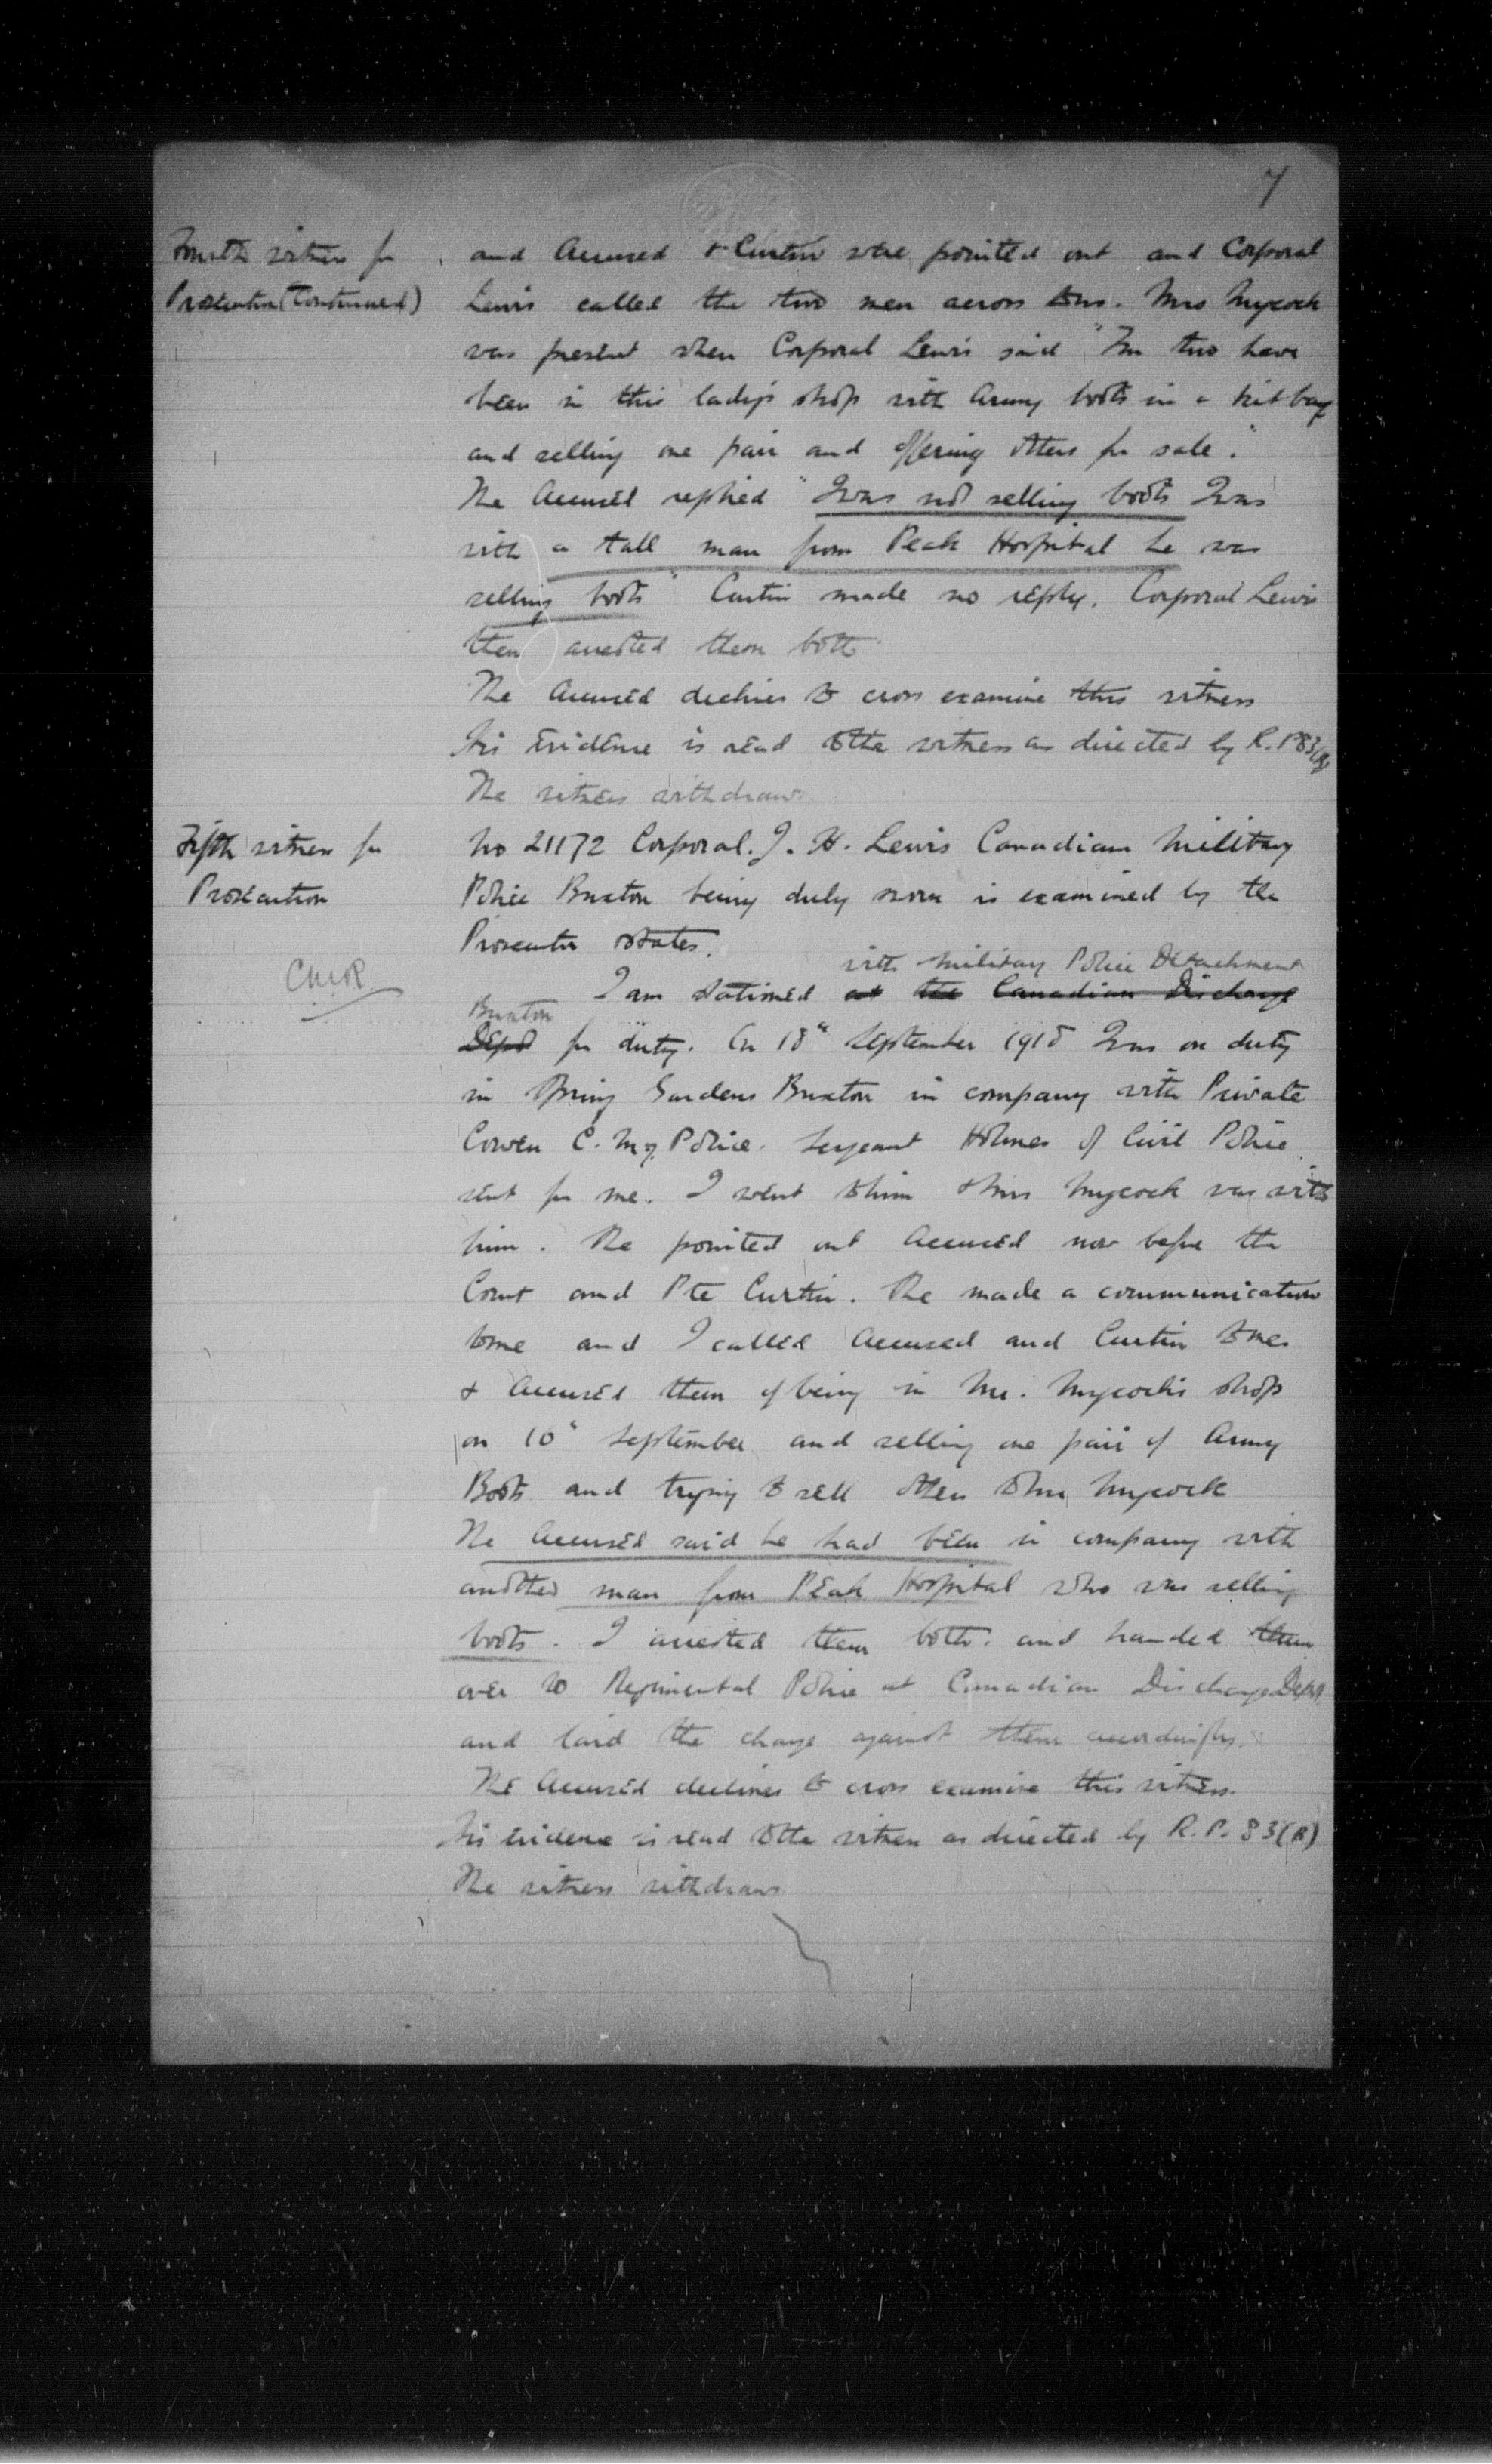 7
Fourth witness for
Prosecution (Continued)
and Accused & Curtin were pointed out and Corporal
Lewis called the two men across to us. Mrs Mycock
was present when Corporal Lewis said "You two have
been in this lady's shop with Army boots in a kit bag
and selling one pair and offering others for sale."
The Accused replied "I was not selling boots I was
with a tall man from Peak Hospital he was
selling boots" Curtin made no reply. Corporal Lewis
then arrested them both.
The Accused declines to cross examine this witness
His Evidence is read to the witness as directed by R.P 83(B)
The witness withdraws.
Fifth witness for
Prosecution
No 21172 Corporal. J. H. Lewis Canadian Military
Police Buxton being duly sworn is examined by the
Prosecutor states.
with Military Police Detachment
I am stationed at the Canadian Discharge
Buxton
Depot for duty. On 18th September 1918 I was on duty
in Spring Gardens Buxton in company with Private
Cowen C. M. Police. Sergeant Holmes of Civil Police
sent for me. I went to him & Mrs Mycock was with
him. She pointed out Accused now before the
Court and Pte Curtin. She made a communication
to me and I called Accused and Curtin to me
& Accused them of being in Mrs. Mycock's shop
on 10th September and selling one pair of Army
Boots and trying to sell others to Mrs Mycock
The Accused said he had been in company with
another man from Peak Hospital who was selling
boots. I arrested them both. and handed them
over to Regimental Police at Canadian Discharge Depot
and laid the charge against them accordingly.
The Accused declines to cross examine this witness.
His Evidence is read to the witness as directed by R.P. 83(B)
The witness withdraws.